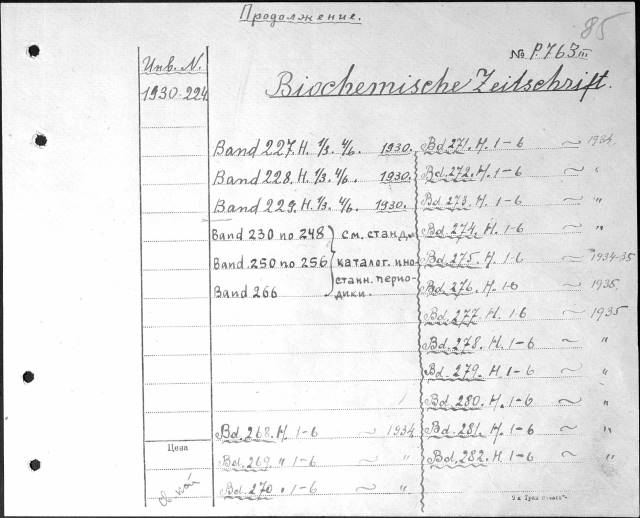 Продолжение.
85
№ P.763 III
Инв. N.
1930-224
Biochemische Zeitschrift.
Band 227. H. 1/3. 4/6. 1930.
Band 228. H. 1/3. 4/6. 1930.
Band 229. H. 1/3. 4/6. 1930.
Band 230 по 248
Band. 250 по 256
Band 266
см. станд.
каталог. ино-
станн. перио-
дики.
Bd. 268. H. 1-6 ~ 1934
Bd. 269. " 1-6 ~ "
Bd. 270 " 1-6 ~ "
Bd. 271. H. 1-6 ~ 1934.
Bd. 272. H. 1-6 ~ "
Bd. 273. H. 1-6 ~ "
Bd. 274. H. 1-6 ~ "
Bd. 275. H. 1-6 ~ 1934-35
Bd. 276. H. 1-6 ~ 1935.
Bd. 277. H. 1-6 ~ 1935
Bd. 278. H. 1-6 ~ "
Bd. 279. H. 1-6 ~ "
Bd. 280. H. 1-6 ~ "
Bd. 281. H. 1-6 ~ "
Bd. 282. H. 1-6 ~ "
Цена